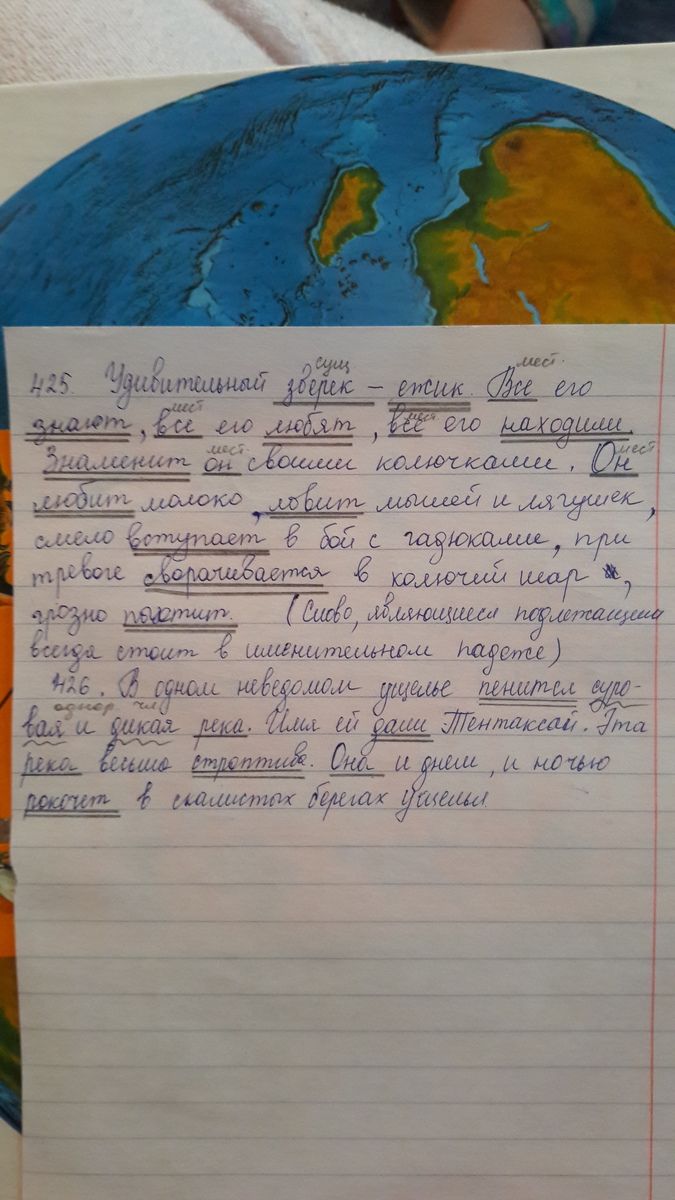 сущ. мест.
425. Удивительный зверек – ежик. Все его
мест мест
знают, все его любят, все его находили.
мест. мест
Знаменит он своими колючками. Он
любит молоко, ловит мышей и лягушек,
смело вступает в бой с гадюками, при
тревоге сворачивается в колючий шар,
грозно пыхтит. (Слово, являющиеся подлежащим
всегда стоит в именительном падеже)
426. В одном неведомом ущелье пенится суро-
однор. чл.
вая и дикая река. Имя ей дали Тентаксай. Эта
река весьма строптива. Она и днем, и ночью
рокочет в скалистых берегах ущелья